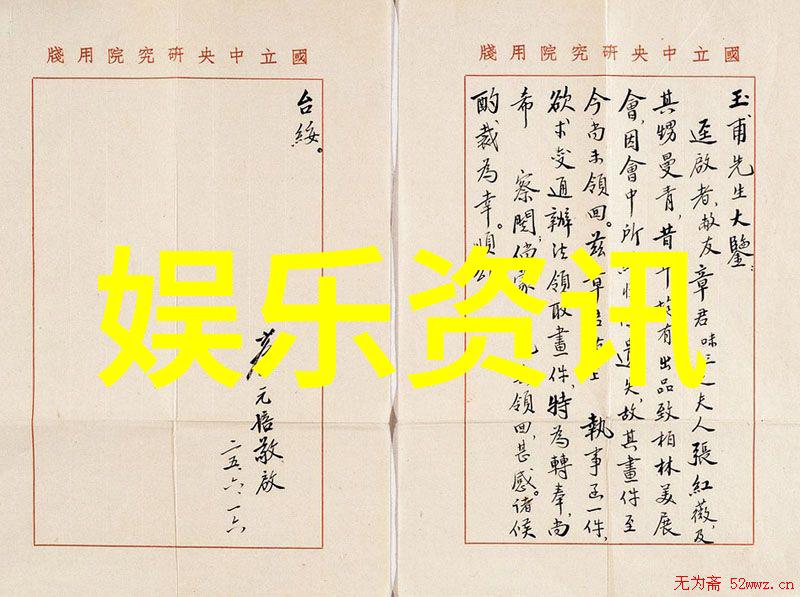 國立中央研究院用牋
玉甫先生大鑒:
逕啟者,敝友章君味三之夫人張紅薇,及
其甥曼青,昔年有出品致柏林美展
會,因會中所遺失,故其畫件至
今尚未領回。茲章君上 執事函一件,
欲求變通辦法領取畫件,特為轉奉,尚
希 察閱,倘蒙領回,甚感。諸候
酌裁為幸。順頌
國立中央研究院用牋
台綏。
蔡元培敬啟
二五、六、一六
娱乐资讯
无为斋 52wwz.cn